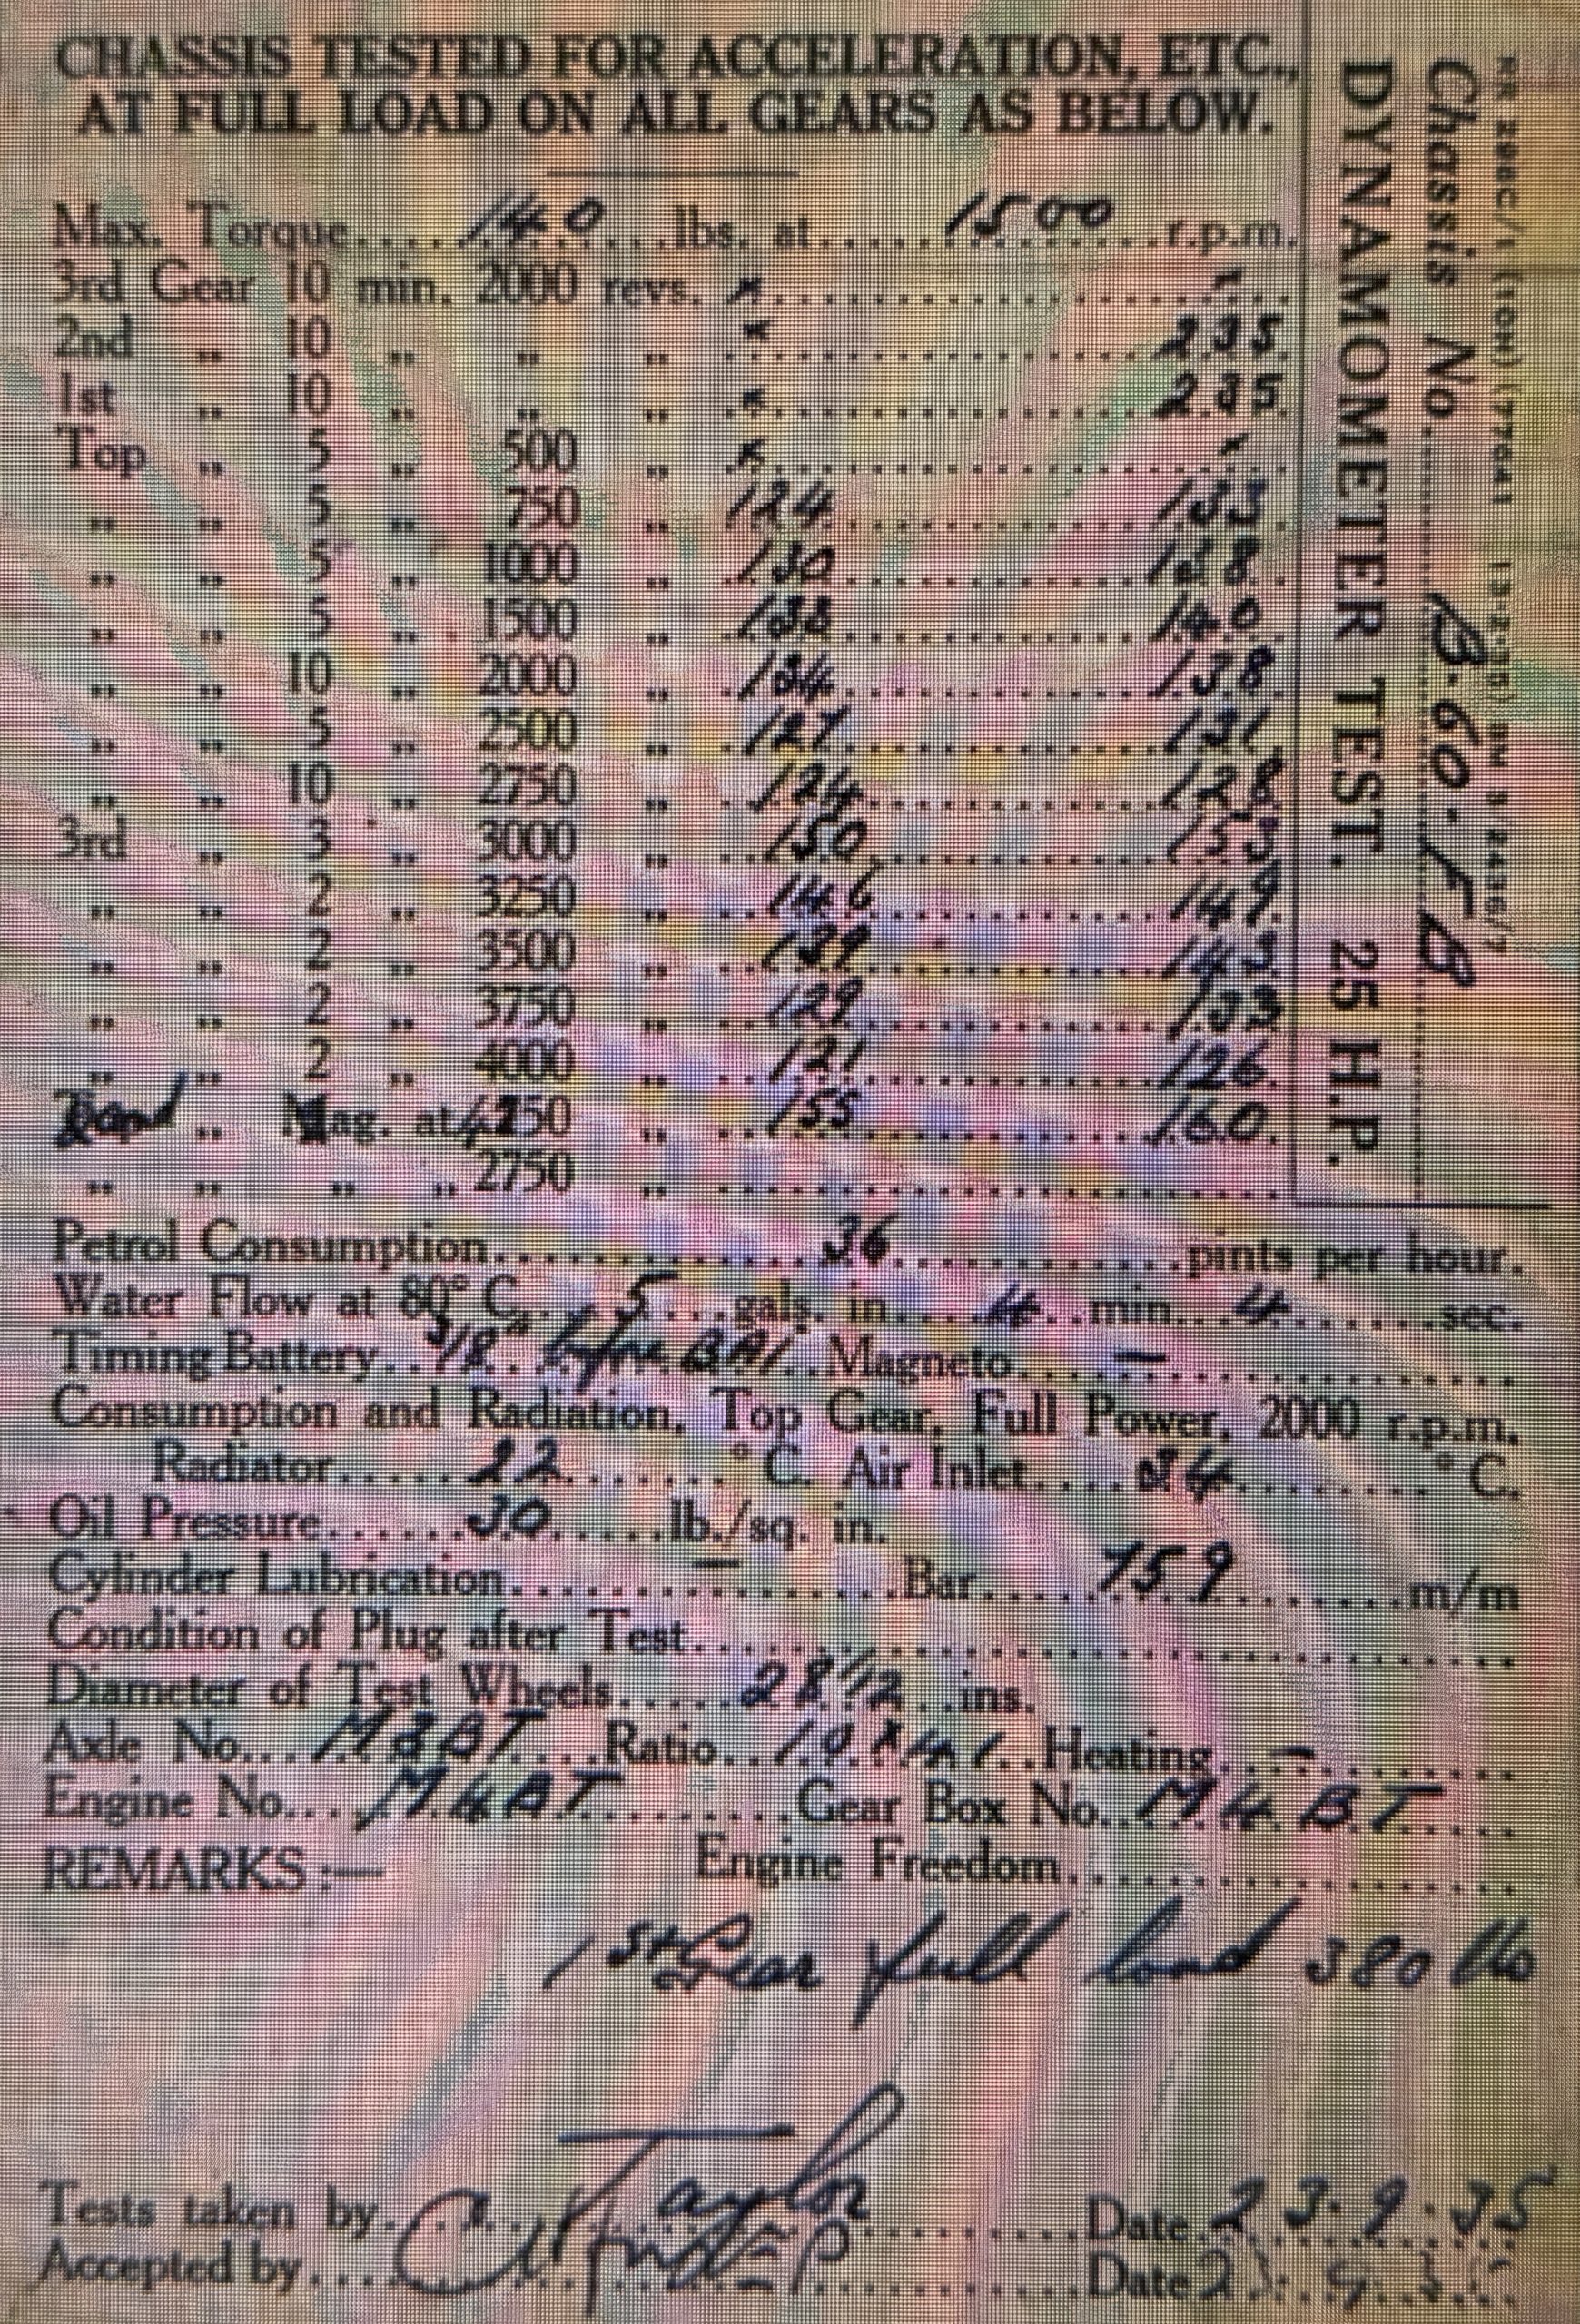 CHASSIS TESTED FOR ACCELERATION, ETC.,
AT FULL LOAD ON ALL GEARS AS BELOW.
Max. Torque....140...lbs. at......1500...r.p.m.
3rd Gear 10 min. 2000 revs. × ×
2nd „ 10 „ „ „ × 235
1st „ 10 „ „ „ × 235
Top „ 5 „ 500 „ × ×
„ „ 5 „ 750 „ 124 133
„ „ 5 „ 1000 „ 130 138
„ „ 5 „ 1500 „ 133 140
„ „ 10 „ 2000 „ 134 138
„ „ 5 „ 2500 „ 127 131
„ „ 10 „ 2750 „ 124 128
3rd „ 3 „ 3000 „ 150 153
„ „ 2 „ 3250 „ 146 149
„ „ 2 „ 3500 „ 139 143
„ „ 2 „ 3750 „ 129 133
„ „ 2 „ 4000 „ 121 126
„ Mag. at 4250 „ 155 160
„ „ „ „ 2750 „
Petrol Consumption 36 pints per hour.
Water Flow at 80° C. 5 gals. in 4 min. 4 sec.
Timing Battery 3/8" before BAI Magneto —
Consumption and Radiation, Top Gear, Full Power, 2000 r.p.m.
Radiator 22 °C. Air Inlet 34 °C.
Oil Pressure 30 lb./sq. in.
Cylinder Lubrication — Bar 759 m/m
Condition of Plug after Test
Diameter of Test Wheels 28 1/2 ins.
Axle No. M3BT Ratio 10 × 41 Heating —
Engine No. M4BT Gear Box No. M4BT
REMARKS :— Engine Freedom
1st Gear full load 380 lbs
Tests taken by Taylor Date 23.9.35
Accepted by Date 23.9.35
DYNAMOMETER TEST. 25 H.P.
Chassis No. B-60-FB